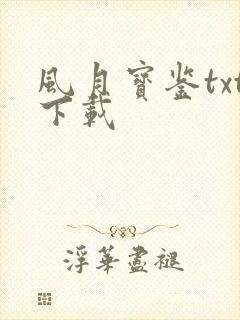 風月寶鉴txt
下載
浮華盡褪